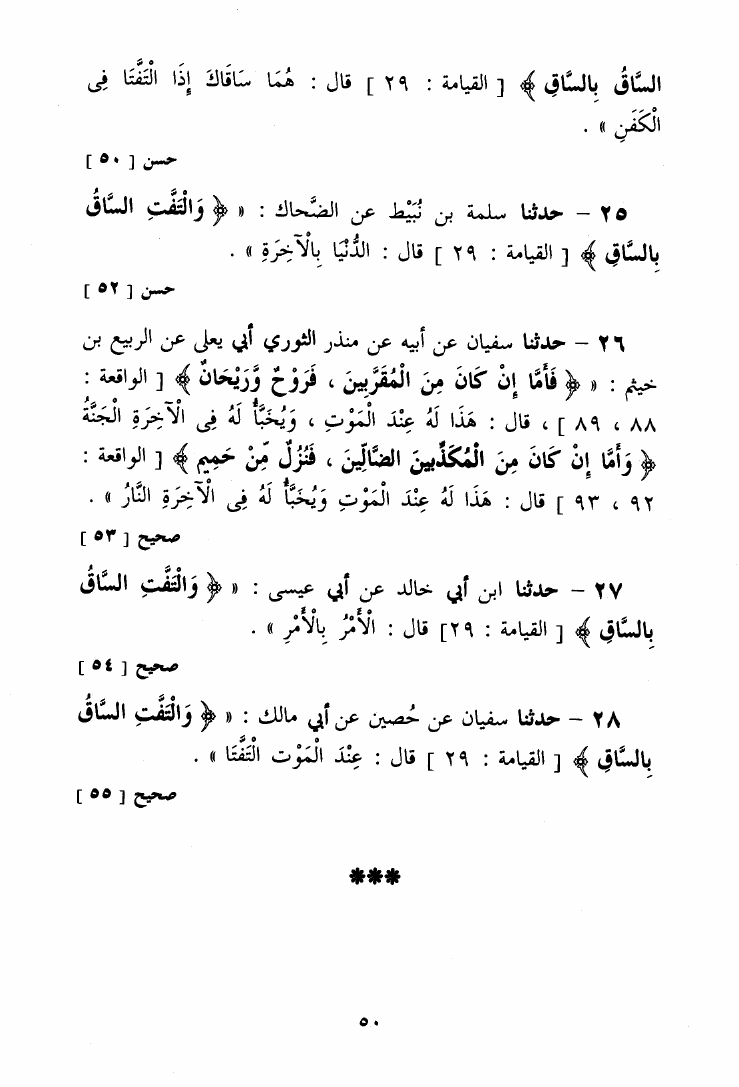 السَّاقُ بِالسَّاقِ ﴾ [ القيامة : ٢٩ ] قال : هُمَا سَاقَاكَ إِذَا الْتَفَّتَا فِى
الْكَفَنِ » .
حسن [ ٥٠ ]
٢٥ – حدثنا سلمة بن نُبَيْط عن الضَّحاك : « ﴿ وَالْتَفَّتِ السَّاقُ
بِالسَّاقِ ﴾ [ القيامة : ٢٩ ] قال : الدُّنْيَا بِالْآخِرَةِ » .
حسن [ ٥٢ ]
٢٦ – حدثنا سفيان عن أبيه عن منذر الثوري أبي يعلى عن الربيع بن
خيثم : « ﴿ فَأَمَّا إِنْ كَانَ مِنَ الْمُقَرَّبِينَ ، فَرَوْحٌ وَّرَيْحَانٌ ﴾ [ الواقعة :
٨٨ ، ٨٩ ] ، قال : هَذَا لَهُ عِنْدَ الْمَوْتِ ، وَيُخَبَّأُ لَهُ فِى الْآخِرَةِ الْجَنَّةُ
﴿ وَأَمَّا إِنْ كَانَ مِنَ الْمُكَذِّبِينَ الضَّالِّينَ ، فَنُزُلٌ مِّنْ حَمِيمٍ ﴾ [ الواقعة :
٩٢ ، ٩٣ ] قال : هَذَا لَهُ عِنْدَ الْمَوْتِ وَيُخَبَّأُ لَهُ فِى الْآخِرَةِ النَّارُ » .
صحيح [ ٥٣ ]
٢٧ – حدثنا ابن أبي خالد عن أبي عيسى : « ﴿ وَالْتَفَّتِ السَّاقُ
بِالسَّاقِ ﴾ [ القيامة : ٢٩] قال : الْأَمْرُ بِالْأَمْرِ » .
صحيح [ ٥٤ ]
٢٨ – حدثنا سفيان عن حُصين عن أبي مالك : « ﴿ وَالْتَفَّتِ السَّاقُ
بِالسَّاقِ ﴾ [ القيامة : ٢٩ ] قال : عِنْدَ الْمَوْت الْتَفَّتَا » .
صحيح [ ٥٥ ]
***
٥٠